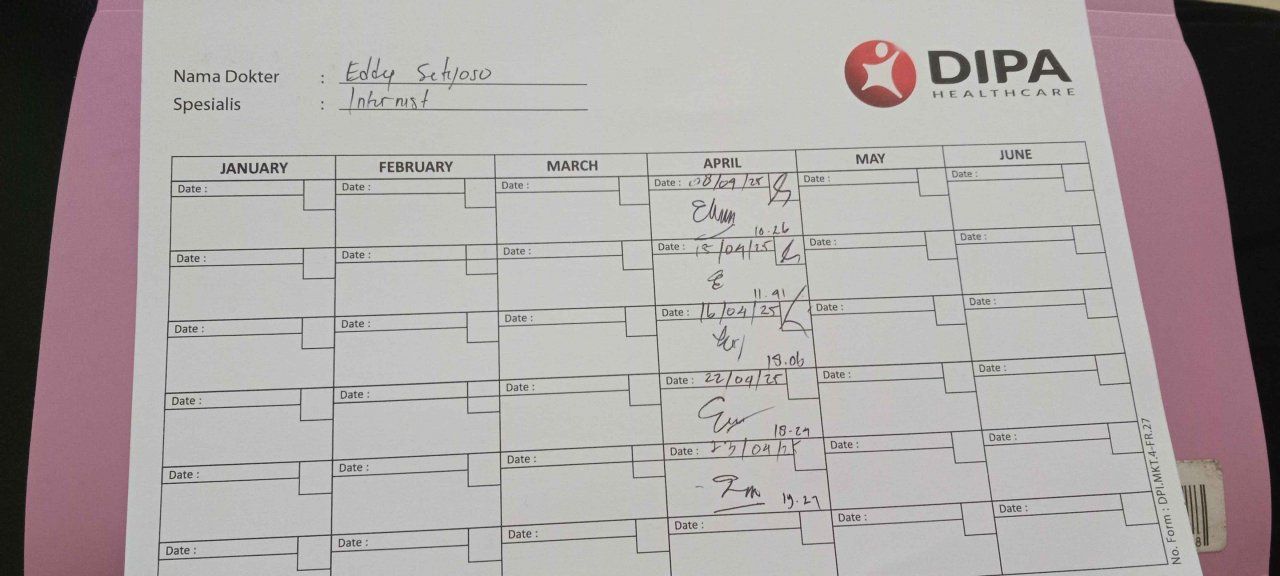 Nama Dokter : Eddy Setyoso
Spesialis : Internist
DIPA
HEALTHCARE
JANUARY FEBRUARY MARCH APRIL MAY JUNE
Date : Date : Date : Date : 08/04/25 Date : Date :
10.26
Date : Date : Date : Date : 15/04/25 Date : Date :
11.41
Date : Date : Date : Date : 16/04/25 Date : Date :
18.06
Date : Date : Date : Date : 22/04/25 Date : Date :
18.29
Date : Date : Date : Date : 23/04/25 Date : Date :
19.27
Date : Date : Date : Date : Date : Date :
No. Form : DPI.MKT.4-FR.27
8